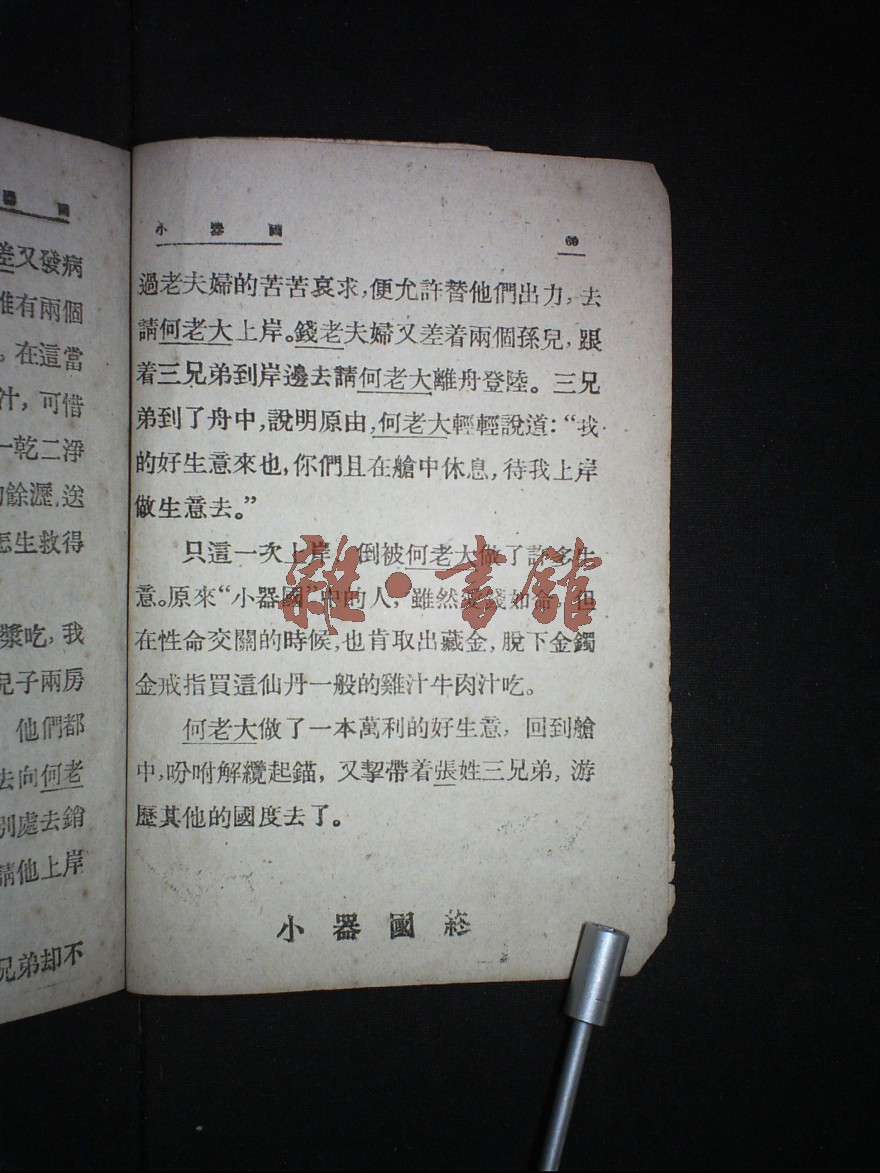 器 國
差又發病
惟有兩個
。在這當
汁，可惜
一乾二淨
餘瀝，送
怎生救得
漿吃，我
兒子兩房
他們都
去向何老
別處去銷
請他上岸
兄弟却不
小器國
60
過老夫婦的苦苦哀求，便允許替他們出力，去
請何老大上岸。錢老夫婦又差着兩個孫兒，跟
着三兄弟到岸邊去請何老大離舟登陸。三兄
弟到了舟中，說明原由，何老大輕輕說道：“我
的好生意來也，你們且在艙中休息，待我上岸
做生意去。”
只這一次上岸，倒被何老大做了許多生
意。原來“小器國”中的人，雖然愛錢如命，但
在性命交關的時候，也肯取出藏金，脫下金鐲
金戒指買這仙丹一般的雞汁牛肉汁吃。
何老大做了一本萬利的好生意，回到艙
中，吩咐解纜起錨，又挈帶着張姓三兄弟，游
歷其他的國度去了。
小器國終
雜·書館